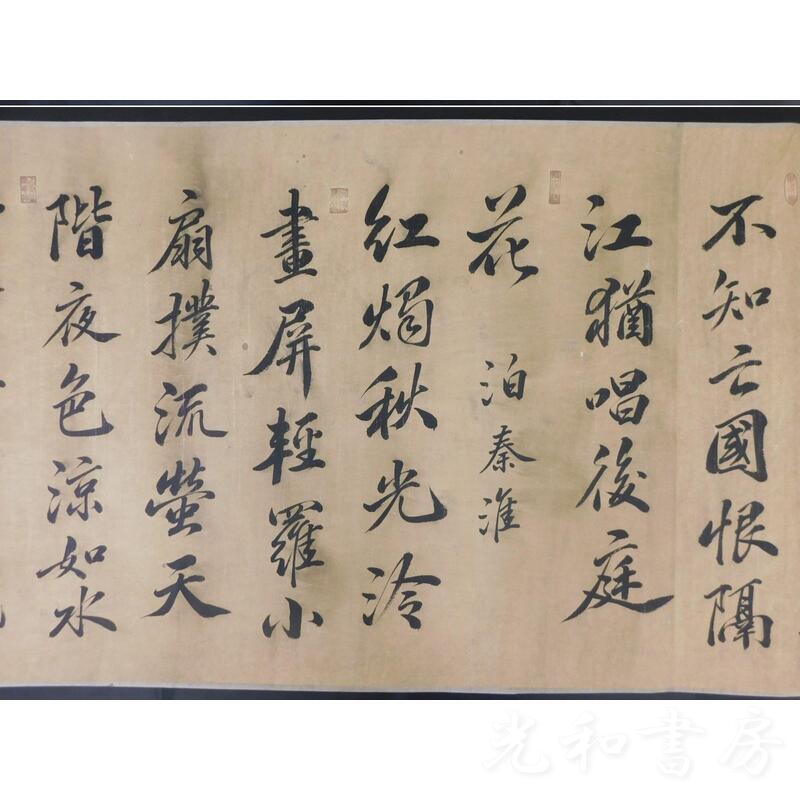 不知亡國恨隔
江猶唱後庭
花 泊秦淮
紅燭秋光泠
畫屏輕羅小
扇撲流螢天
階夜色涼如水
光和書房